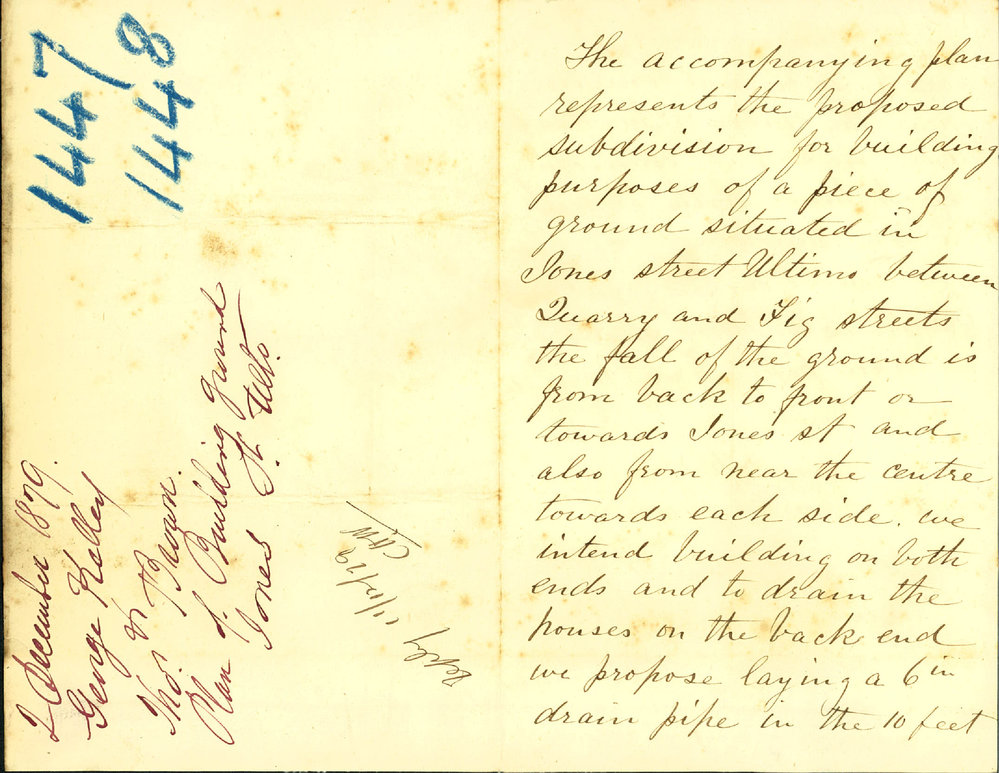 1447
1448
2 December 1879.
George Kelley
Thos. Brown.
Plan of Building ground
Jones St.
Reply 11/12/79
The accompanying plan
represents the proposed
subdivision for building
purposes of a piece of
ground situated in
Jones street Ultimo between
Quarry and Fig streets
the fall of the ground is
from back to front or
towards Jones st and
also from near the centre
towards each side. we
intend building on both
ends and to drain the
houses on the back end
we propose laying a 6 in
drain pipe in the 10 feet